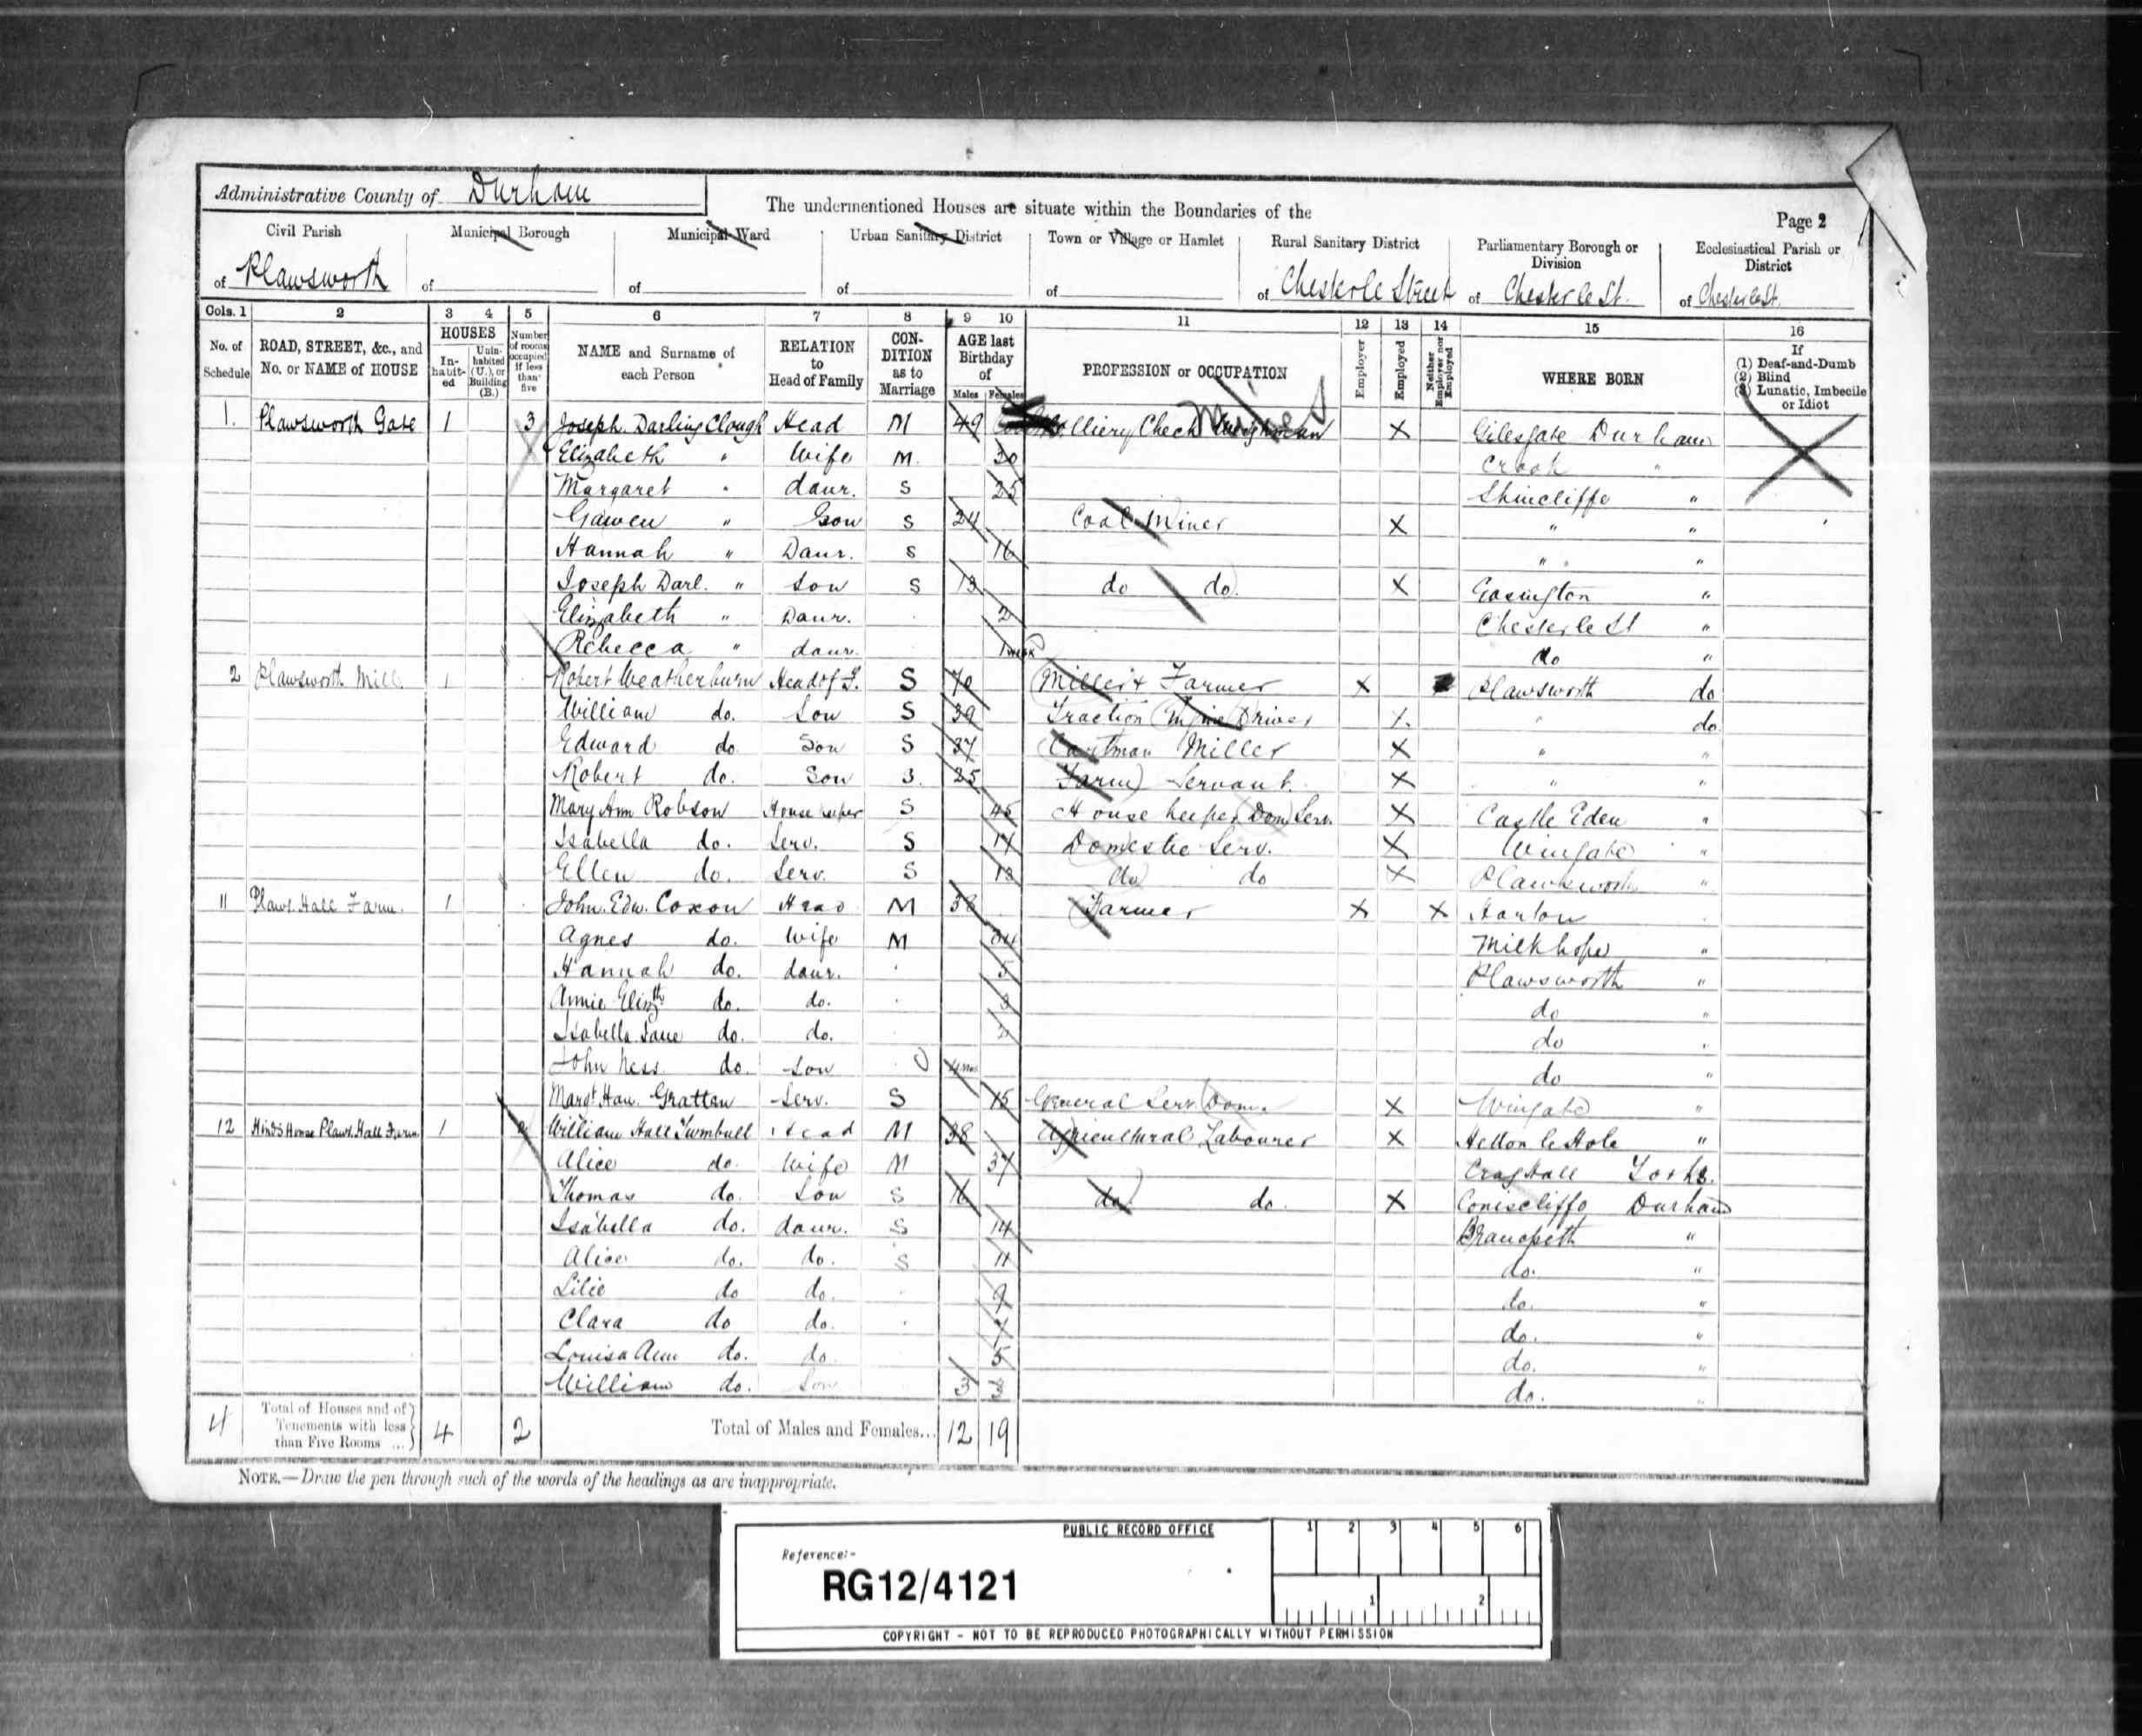 Administrative County of Durham
The undermentioned Houses are situate within the Boundaries of the
Page 2
Civil Parish Municipal Borough Municipal Ward Urban Sanitary District Town or Village or Hamlet Rural Sanitary District Parliamentary Borough or Division Ecclesiastical Parish or District
of Plawsworth of of of of of Chester le Street of Chester le St. of Chester le St.
Cols. 1 2 3 4 5 6 7 8 9 10 11 12 13 14 15 16
No. of Schedule ROAD, STREET, &c., and No. or NAME of HOUSE HOUSES In-habit-ed Unin-habited (U.), or Building (B.) Number of rooms occupied if less than five NAME and Surname of each Person RELATION to Head of Family CON-DITION as to Marriage AGE last Birthday of Males Females PROFESSION or OCCUPATION Employer Employed Neither Employer nor Employed WHERE BORN If (1) Deaf-and-Dumb (2) Blind (3) Lunatic, Imbecile or Idiot
1. Plawsworth Gate 1 3 Joseph Darling Clough Head M 49 Colliery Check Weighman X Gilesgate Durham
Elizabeth " Wife M. 30 Crook "
Margaret " daur. S 25 Shincliffe "
Gawen " Son S 24 Coal Miner X " "
Hannah " Daur. S 16 " "
Joseph Darl. " Son S 13 do do. X Easington "
Elizabeth " Daur. 2 Chester le St "
Rebecca " daur. 1 week do "
2 Plawsworth Mill 1 Robert Weatherburn Head of F. S 70 Miller & Farmer X Plawsworth do
William do. Son S 39 Traction Engine Driver X " do
Edward do Son S 37 Cartman Miller X " "
Robert do. Son S. 25 Farm Servant. X " "
Mary Ann Robson House keeper S 45 House keeper Dom Serv. X Castle Eden "
Isabella do. Serv. S 17 Domestic Serv. X Wingate "
Ellen do. Serv. S 13 do do X Plawsworth "
11 Plaws. Hall Farm. 1 John Edw. Coxon Head M 38 Farmer X X Harton
Agnes do. Wife M 34 Milkhope "
Hannah do. daur. 5 Plawsworth "
Annie Elizth do. do. 3 do "
Isabella Jane do. do. 2 do "
John Ness do. Son 4 mos do "
Margt. Han. Grattan Serv. S 15 General Serv. Dom. X Wingate "
12 Hinds House Plaws. Hall Farm 1 2 William Hall Turnbull Head M 38 Agricultural Labourer X Hetton le Hole "
Alice do. Wife M 37 Crag Hall Yorks.
Thomas do. Son S 16 do. do. X Coniscliffe Durham
Isabella do. daur. S 14 Brancepeth "
Alice do. do. S 11 do. "
Lilie do do. 9 do. "
Clara do do. 7 do. "
Louisa Ann do. do 5 do. "
William do. Son 3 3 do. "
4 Total of Houses and of Tenements with less than Five Rooms ... 4 2 Total of Males and Females... 12 19
NOTE.—Draw the pen through such of the words of the headings as are inappropriate.
PUBLIC RECORD OFFICE
1 2 3 4 5 6
Reference:-
RG12/4121
1 2
COPYRIGHT - NOT TO BE REPRODUCED PHOTOGRAPHICALLY WITHOUT PERMISSION